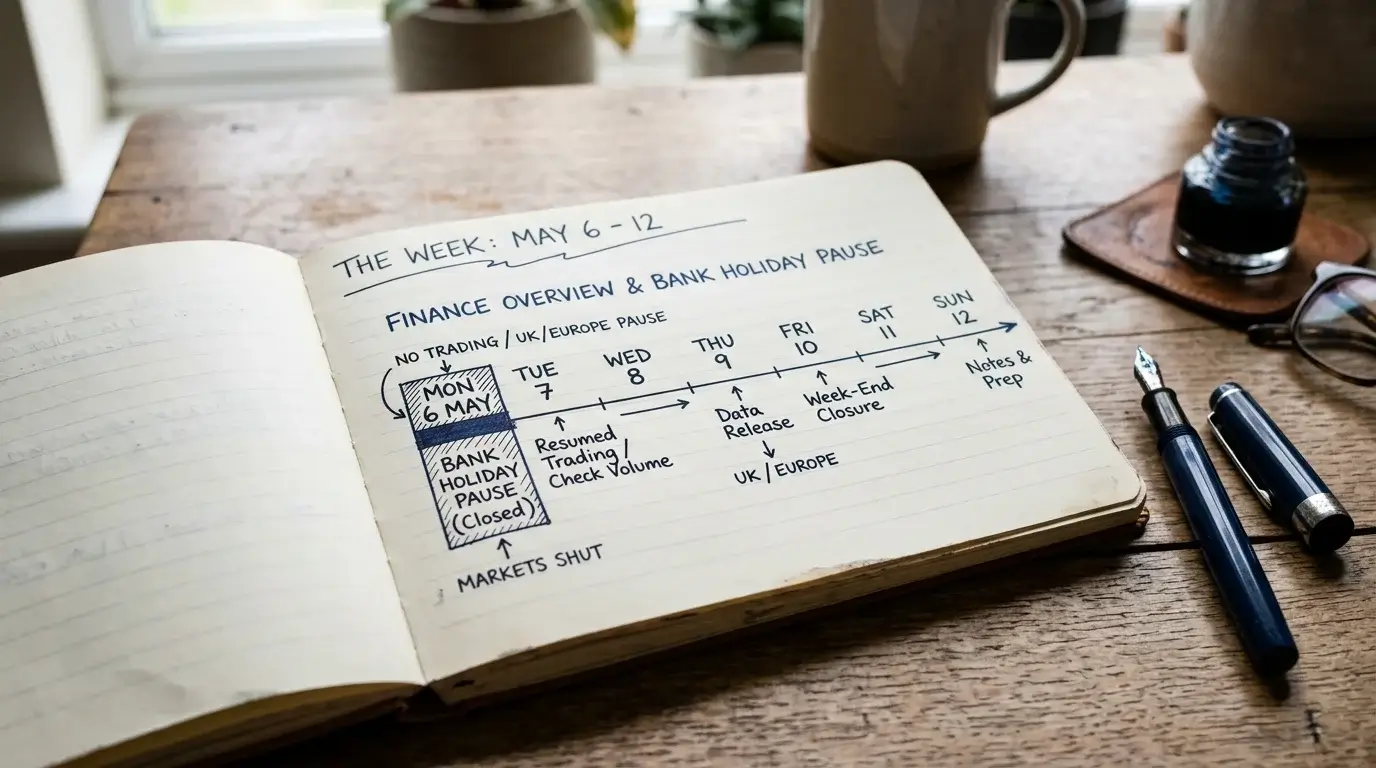 THE WEEK: MAY 6 - 12
FINANCE OVERVIEW & BANK HOLIDAY PAUSE
NO TRADING / UK/EUROPE PAUSE
MON
6 MAY
BANK
HOLIDAY
PAUSE
(Closed)
MARKETS SHUT
TUE
7
Resumed
Trading /
Check Volume
WED
8
THU
9
Data
Release
UK / EUROPE
FRI
10
Week-End
Closure
SAT
11
SUN
12
Notes &
Prep